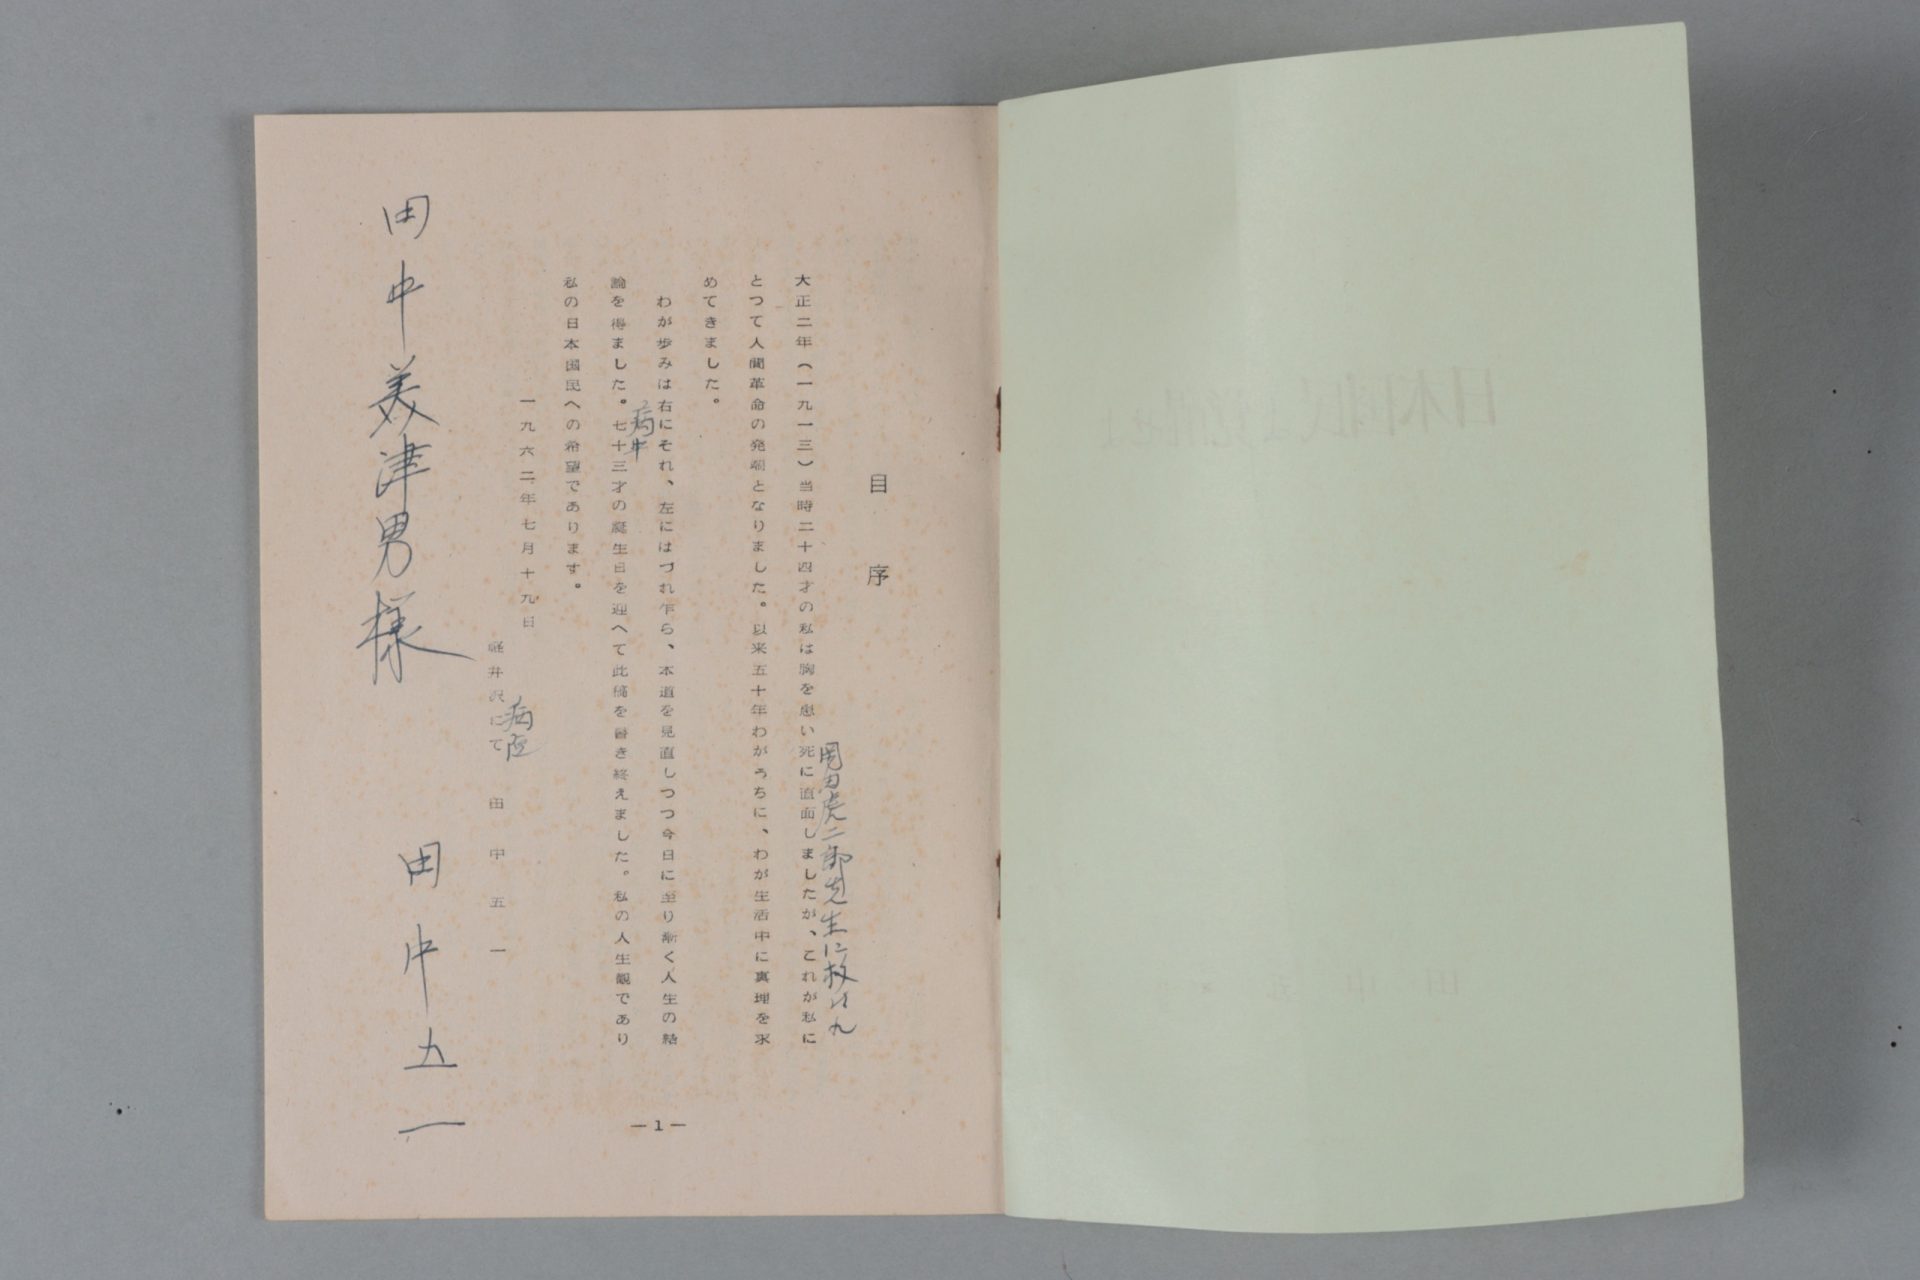 目序
大正二年(一九一三)当時二十四才の私は胸を患い死に直面しましたが、これが私に
岡田虎二郎先生に救はれ
とつて人間革命の発端となりました。以来五十年わがうちに、わが生活中に真理を求
めてきました。
わが歩みは右にそれ、左にはづれ乍ら、本道を見直しつつ今日に至り漸く人生の結
病中
論を得ました。七十三才の誕生日を迎へて此稿を書き終えました。私の人生観であり
私の日本国民への希望であります。
一九六二年七月十九日
病院
軽井沢にて 田中五一
田中美津男様 田中五一
—1—